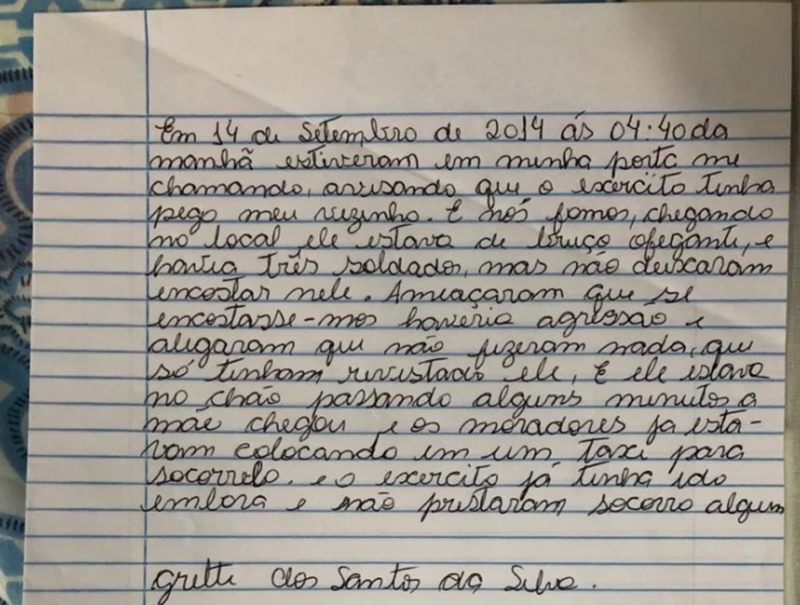 Em 14 de Setembro de 2014 ás 04:40 da
manhã estiveram em minha porta me
chamando, avisando que o exercito tinha
pego meu vizinho. E nós fomos, chegando
no local ele estava de bruço ofegante, e
havia três soldado, mas não deixaram
encostar nele. Ameaçaram que se
encostasse-mos haveria agressão e
alegaram que não fizeram nada, que
só tinham revistado ele, E ele estava
no chão passando alguns minutos a
mãe chegou e os moradores ja esta-
vam colocando em um taxi para
socorrelo. e o exercito já tinha ido
embora e não prestaram socorro algum
dos Santos da Silva.